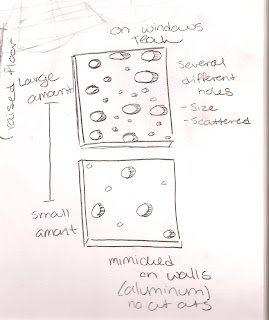 on windows
Several
different
holes
- Size
- Scattered
(raised floor
Large
amant
small
amant
mimicked
on walls
(aluminum)
no cut outs